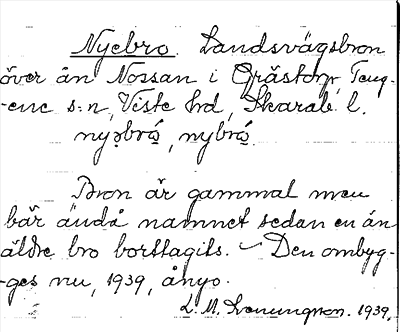 Nyebro. Landsvägsbron
över ån Nossan i Grästorp, Teng-
-ene s:n, Viste hd, Skarab. l.
nyəbrö̀, nybrö̀.
Bron är gammal men
bär ändå namnet sedan en än
äldre bro borttagits. – Den ombyg-
-ges nu, 1939, ånyo.
L. M. Svenungsson. 1939.